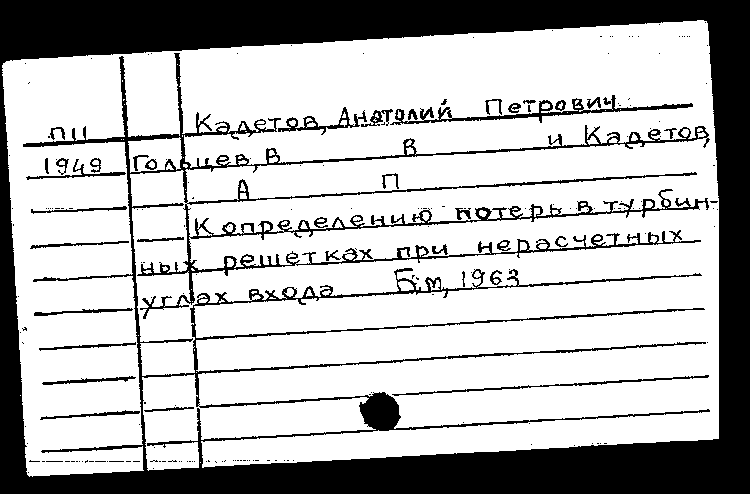 ПИ Кадетов, Анатолий Петрович
1949 Гольцев, В В и Кадетов,
А П
К определению потерь в турбин-
ных решетках при нерасчетных
углах входа Б.м, 1963